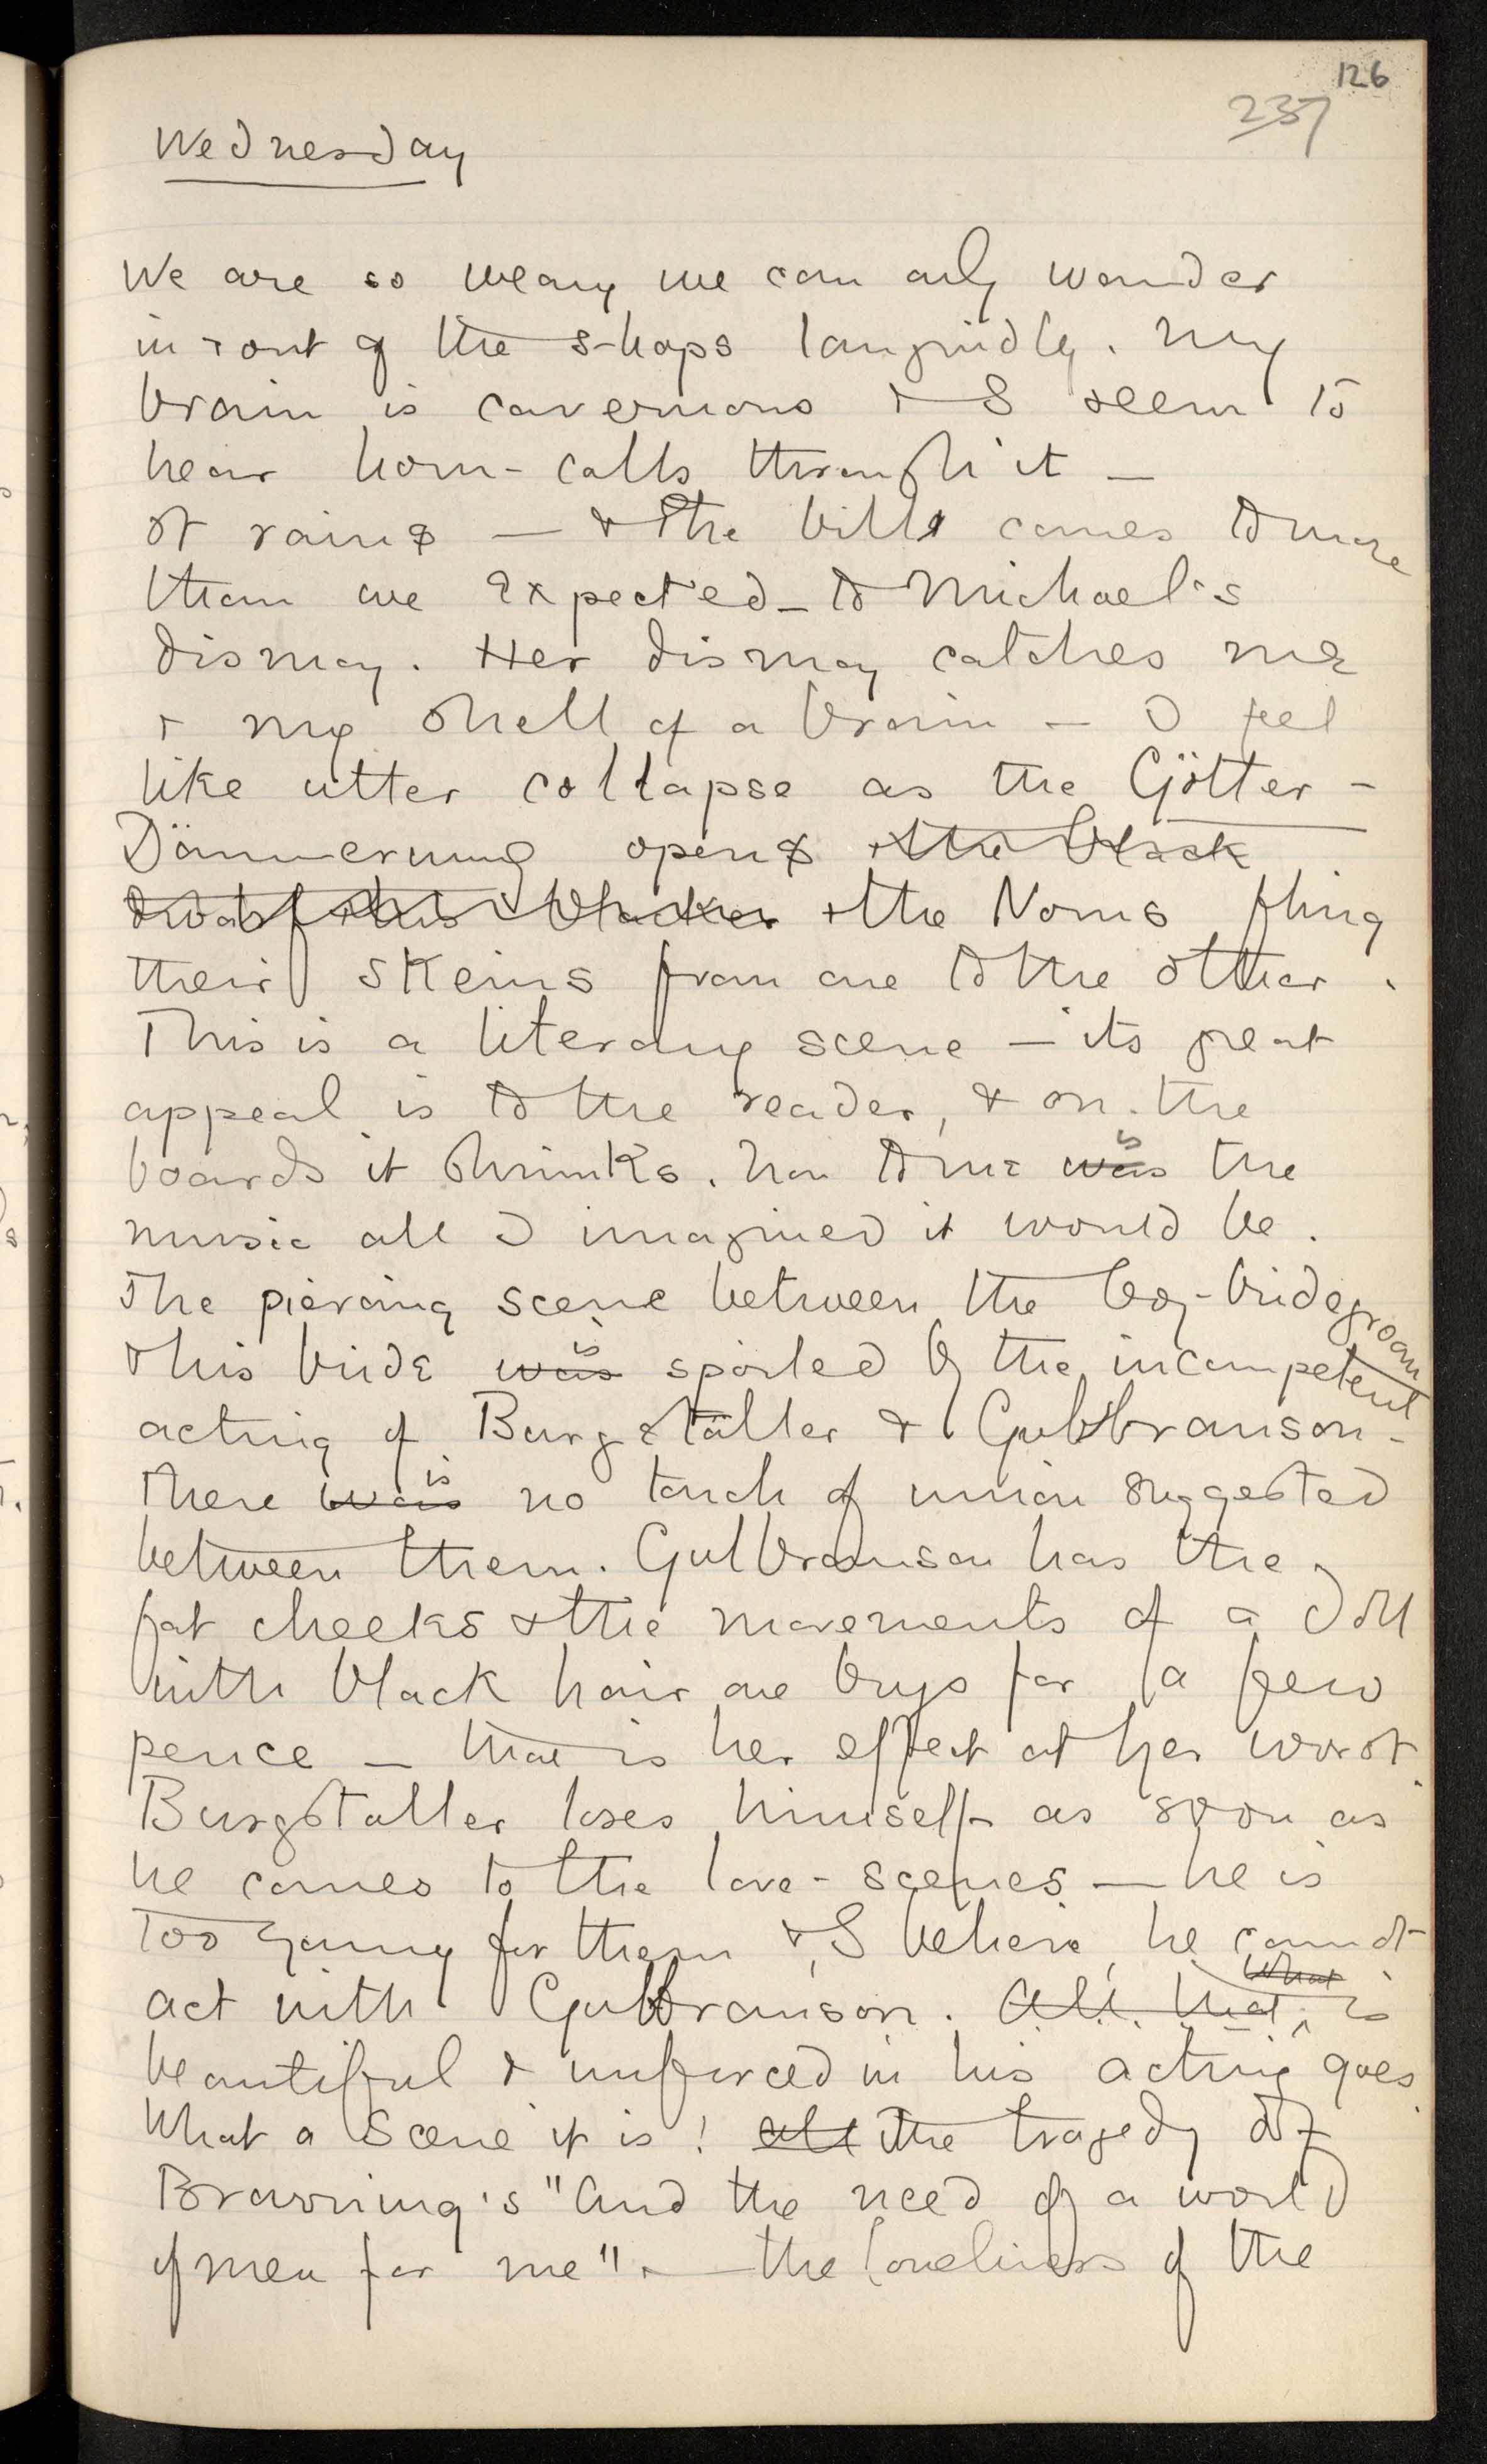 126
237
Wednesday
We are so weary we can only wander
in & out of the shops languidly. My
brain is cavernous & I seem to
hear horn-calls through it —
It rains — & the bill comes to more
than we expected — to Michael's
dismay. Her dismay catches me
& my shell of a brain — I feel
like utter collapse as the Götter-
Dämmerung opens & the black
dwarf & his blacker & the Norns fling
their skeins from one to the other.
This is a literary scene — its great
appeal is to the reader, & on the
boards it shrinks. Nor to me was is the
music all I imagined it would be.
The piercing scene between the boy-bridegroom
& his bride was is spoiled by the incompetent
acting of Burgställer & Gulbranson —
There was is no touch of union suggested
between them. Gulbranson has the
fat cheeks & the movements of a Doll
with black hair one buys for a few
pence — that is her effect at her worst.
Burgstaller loses himself as soon as
he comes to the love-scenes — he is
too young for them & I believe he cannot
act with Gulbranson. All that what is
beautiful & unforced in his acting goes.
What a Scene it is! all The tragedy of
Browning's "And the need of a world
of men for me". — the loneliness of the